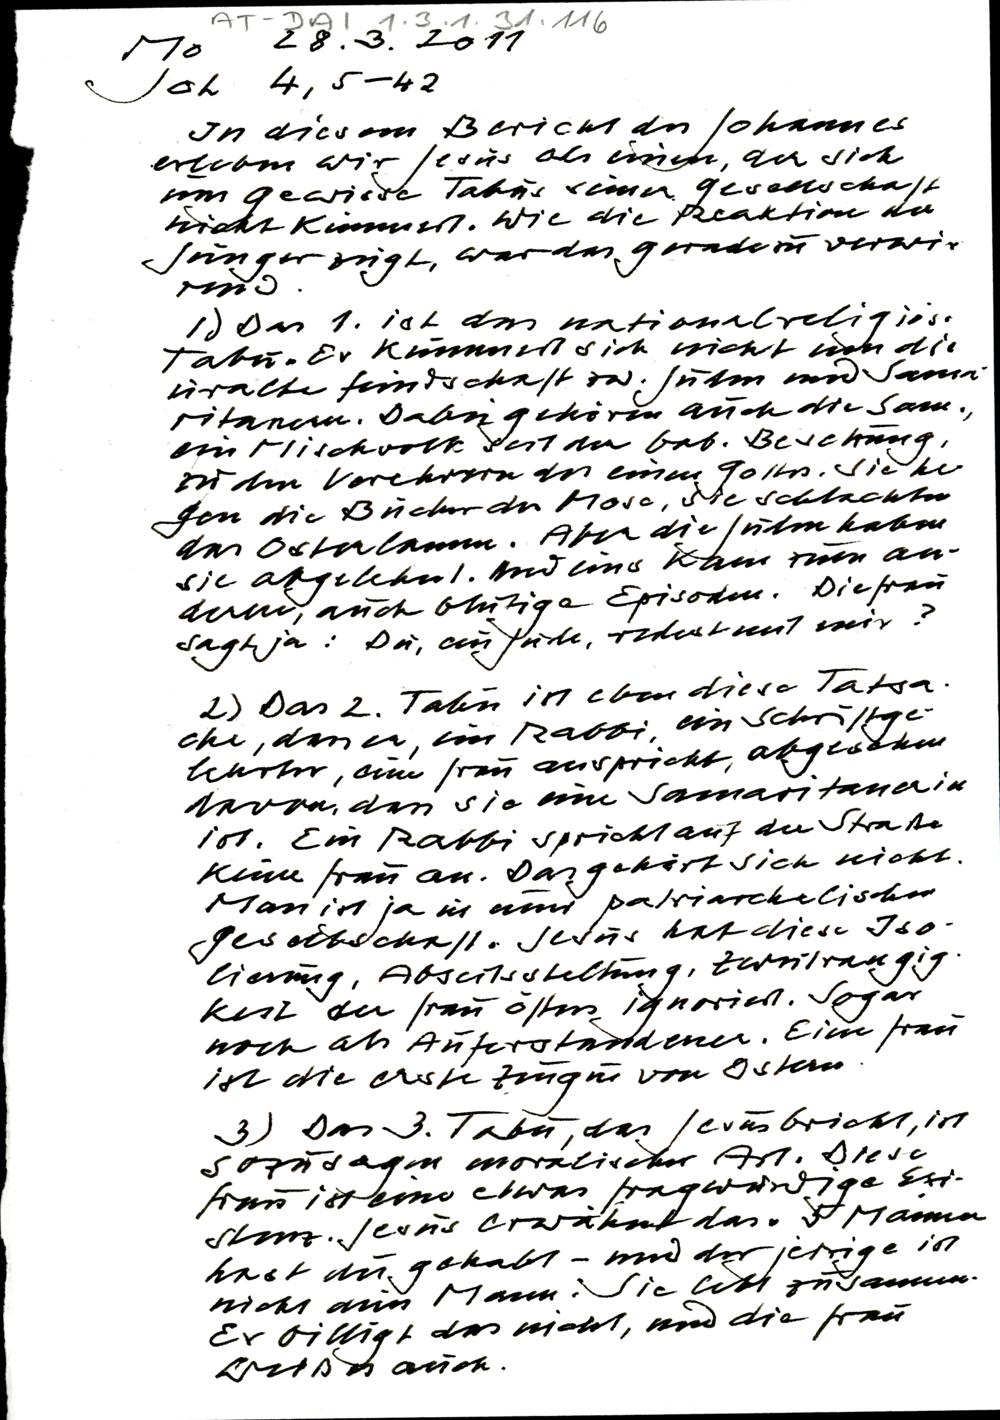 AT-DAI 1.3.1.31.116
Mo 28.3.2011
Joh 4, 5-42
In diesem Bericht des Johannes
erleben wir Jesus als einen, der sich
um gewisse Tabus seiner Gesellschaft
nicht kümmert. Wie die Reaktion der
Jünger zeigt, war das geradezu verwir-
rend.
1) Das 1. ist das nationalreligiöse
Tabu. Er kümmert sich nicht um die
uralte Feindschaft zw. Juden und Sama-
ritanern. Dabei gehören auch die Sam.,
ein Mischvolk seit der bab. Besetzung,
zu den Verehrern des einen Gottes. Sie
die Bücher des Mose, sie schlachten
das Osterlamm. Aber die Juden haben
sie abgelehnt. Und eins kam zum an-
deren, auch blutige Episoden. Die Frau
sagt ja: Du, ein Jude, redest mit mir?
2) Das 2. Tabu ist eben diese Tatsa-
che, dass er, ein Rabbi, ein Schriftge-
lehrter, eine Frau anspricht, abgesehen
davon, dass sie eine Samaritanerin
ist. Ein Rabbi spricht auf der Straße
keine Frau an. Das gehört sich nicht.
Man ist ja in einer patriarchalischen
Gesellschaft. Jesus hat diese Iso-
lierung, Abseitsstellung, Zweitrangig-
keit der Frau öfters ignoriert. Sogar
noch als Auferstandener. Eine Frau
ist die erste Zeugin von Ostern.
3) Das 3. Tabu, das Jesus bricht, ist
sozusagen moralischer Art. Diese
Frau ist eine etwas fragwürdige Exi-
stenz. Jesus erwähnt das. 5 Männer
hast du gehabt - und der jetzige ist
nicht dein Mann. Sie lebt zusammen.
Er billigt das nicht, und die Frau
weiß es auch.